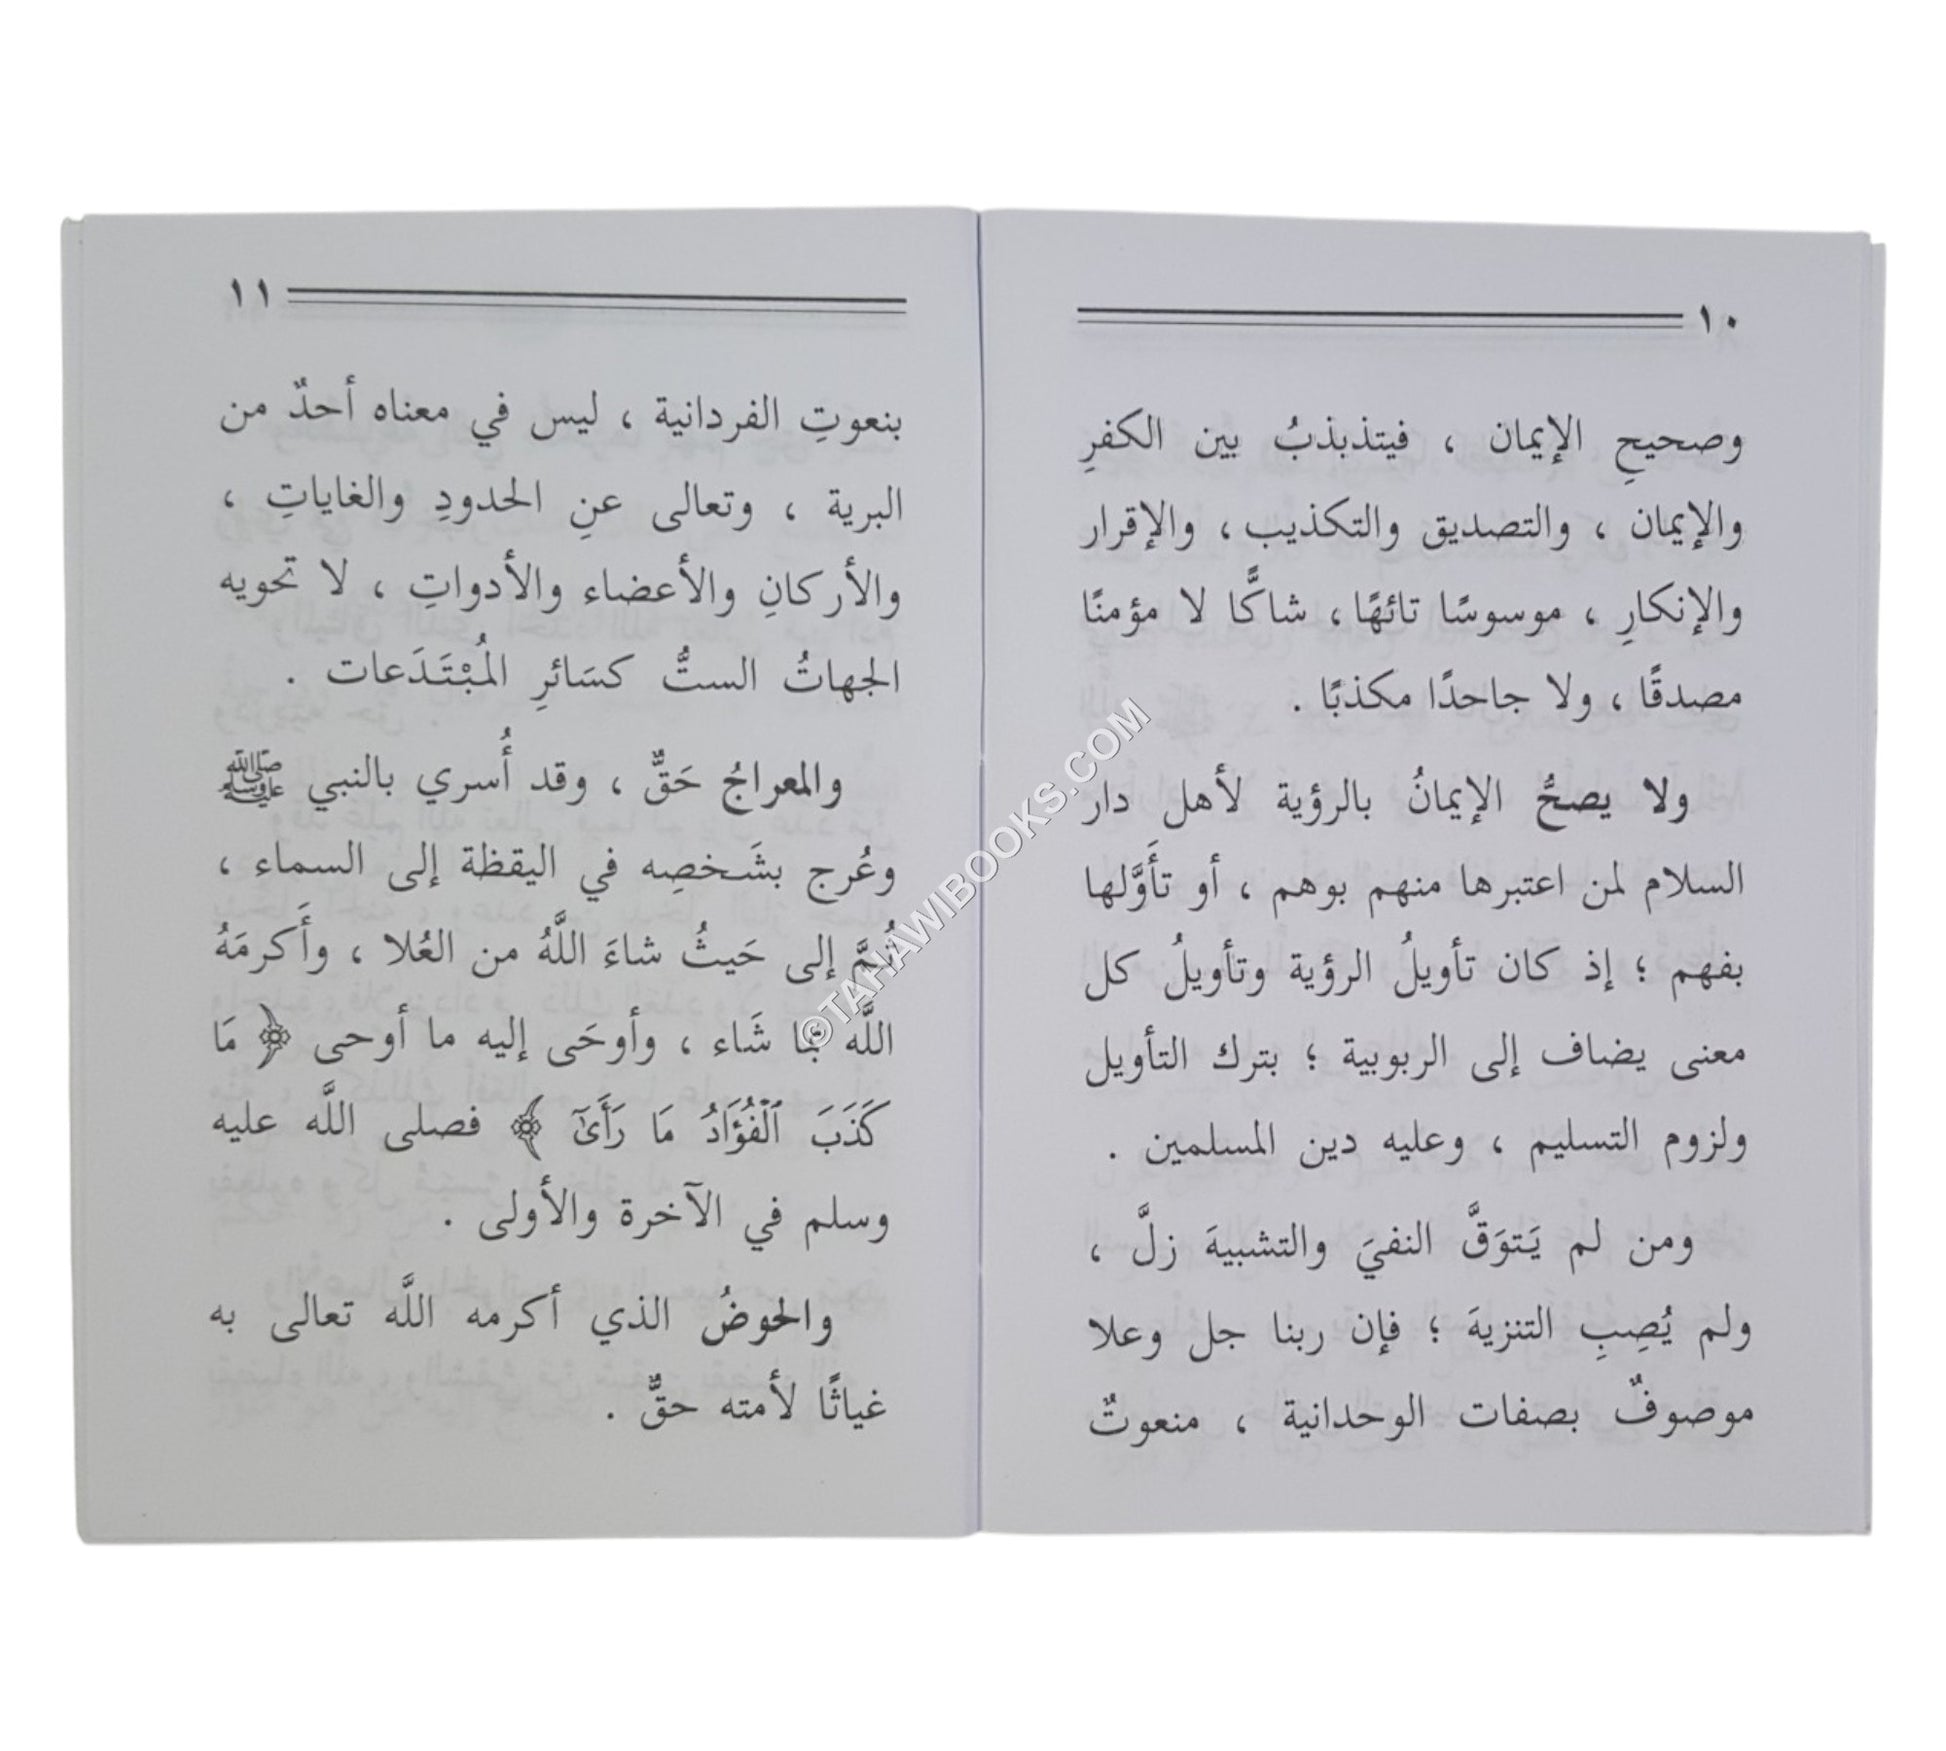 ١٠
وصحيحِ الإيمان ، فيتذبذبُ بين الكفرِ
والإيمان ، والتصديق والتكذيب ، والإقرار
والإنكارِ ، موسوسًا تائهًا ، شاكًّا لا مؤمنًا
مصدقًا ، ولا جاحدًا مكذبًا .
ولا يصحُّ الإيمانُ بالرؤية لأهل دار
السلام لمن اعتبرها منهم بوهم ، أو تأَوَّلها
بفهم ؛ إذ كان تأويلُ الرؤية وتأويلُ كل
معنى يضاف إلى الربوبية ؛ بترك التأويل
ولزوم التسليم ، وعليه دين المسلمين .
ومن لم يَتوَقَّ النفيَ والتشبيهَ زلَّ ،
ولم يُصِبِ التنزيهَ ؛ فإن ربنا جل وعلا
موصوفٌ بصفات الوحدانية ، منعوتٌ
١١
بنعوتِ الفردانية ، ليس في معناه أحدٌ من
البرية ، وتعالى عنِ الحدودِ والغاياتِ ،
والأركانِ والأعضاء والأدواتِ ، لا تحويه
الجهاتُ الستُّ كسَائرِ المُبْتَدَعات .
والمعراجُ حَقٌّ ، وقد أُسري بالنبي ﷺ
وعُرج بشَخصِه في اليقظة إلى السماء ،
ثُمَّ إلى حَيثُ شاءَ اللَّهُ من العُلا ، وأَكرمَهُ
اللَّه بمَا شَاء ، وأوحَى إليه ما أوحى ﴿ مَا
كَذَبَ ٱلْفُؤَادُ مَا رَأَىٰٓ ﴾ فصلى اللَّه عليه
وسلم في الآخرة والأولى .
والحوضُ الذي أكرمه اللَّه تعالى به
غياثًا لأمته حقٌّ .
©TAHAWIBOOKS.COM